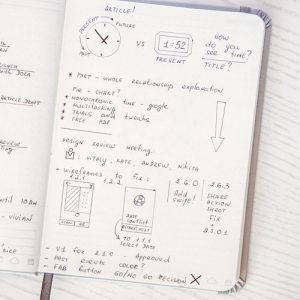 ARTICLE!
PRESENT
FUTURE
PAST
VS
1:52
PRESENT
HOW
DO YOU
SEE TIME?
TITLE?
* PAST - WHOLE RELATIONSHIP EXPLANATION
PIE - CHART?
* MONOCHRONIC TIME - google
* MULTITASKING
* TRIALS AND tweaks
* FREE PDF
DESIGN REVIEW MEETING
: VITALY, KATE, ANDREW, NIKITA
- WIREFRAMES TO FIX:
1.2.1
1.2.2
2.6.0
Add
Swipe!
2.6.3
SHARE
ACTION
SHEET
FIX
+
2.3.01
DATE
CONFLICT
TO 1.1.1
SELECT DATE
- V1 FOR 2.1.0 - APPROVED
- PAST EVENTS COLOR?
- FAB BUTTON GO/NO GO DECISION
ARTICLE DRAFT
- VIVIAN